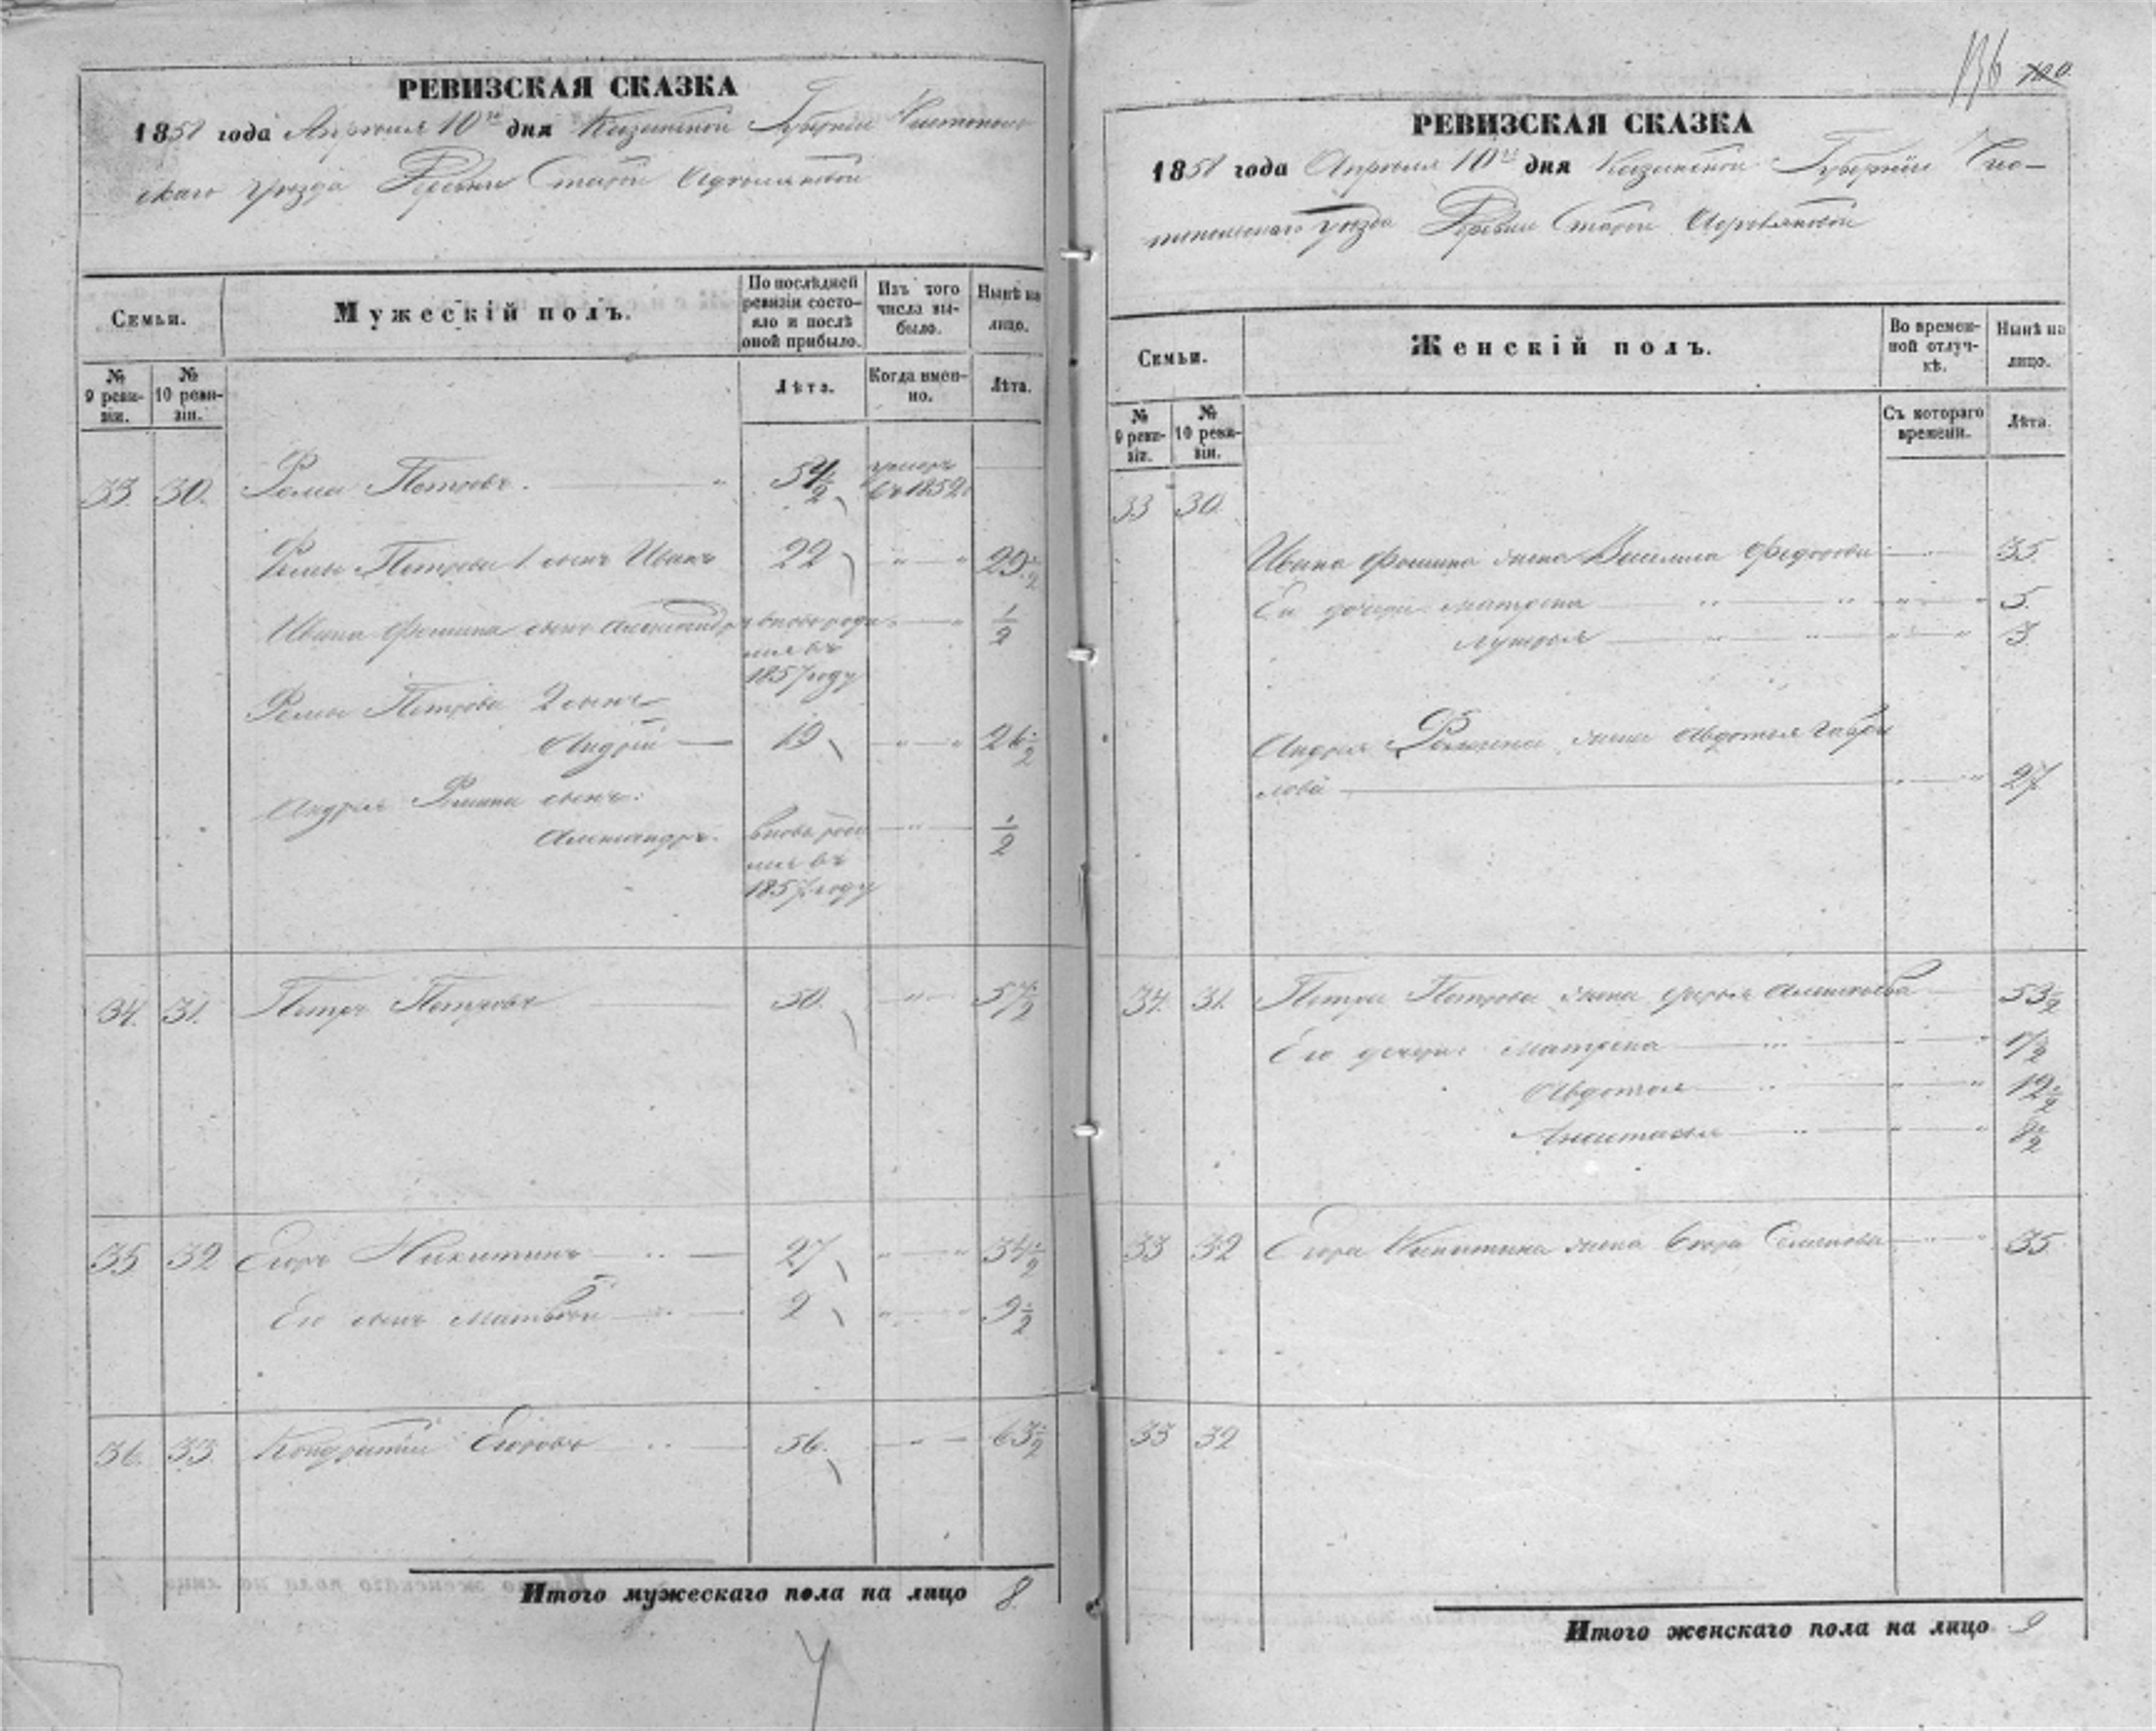 РЕВИЗСКАЯ СКАЗКА
1858 года Апреля 10го дня Казанской Губернии Чистополь
скаго уезда Деревни Старой
Семьи.
Мужескій полъ.
По послѣдней ревизіи состояло и послѣ оной прибыло.
Изъ того числа выбыло.
Нынѣ на лицо.
№ 9 ревизіи.
№ 10 ревизіи.
Лѣта.
Когда именно.
Лѣта.
33. 30. Фома Петровъ. 54½ умеръ въ 1852
Фомы Петрова 1 сынъ Иванъ 22 29½
Ивана Фомина сынъ Александръ вновь роди ½
лся въ
1857 году
Фомы Петрова 2 сынъ
Андрей 19 26½
Андрея Фомина сынъ:
Александръ. вновь роди ½
лся въ
1857 году
34. 31. Петръ Петровъ 50. 57½
35 32 Егоръ Никитинъ 27 34½
Его сынъ Матвей 2 9½
36. 33. Кондратий Егоровъ 56. 63½
Итого мужескаго пола на лицо 8.
136
РЕВИЗСКАЯ СКАЗКА
1858 года Апреля 10го дня Казанской Губернии Чис-
топольскаго уезда Деревни Старой
Семьи.
Женскій полъ.
Во временной отлучкѣ.
Нынѣ на лицо.
№ 9 ревизіи.
№ 10 ревизіи.
Съ котораго времени.
Лѣта.
33 30.
Ивана Фомина жена Василиса Федорова 35.
Ея дочери Матрена 5.
3.
Андрея Фомина жена Авдотья Гаври
лова 27
34. 31. Петра Петрова жена 53½
Его дочери: Матрена
Авдотья 12½
Анастасия 8½
33 32 Егора Никитина жена 35
33 32
Итого женскаго пола на лицо 9